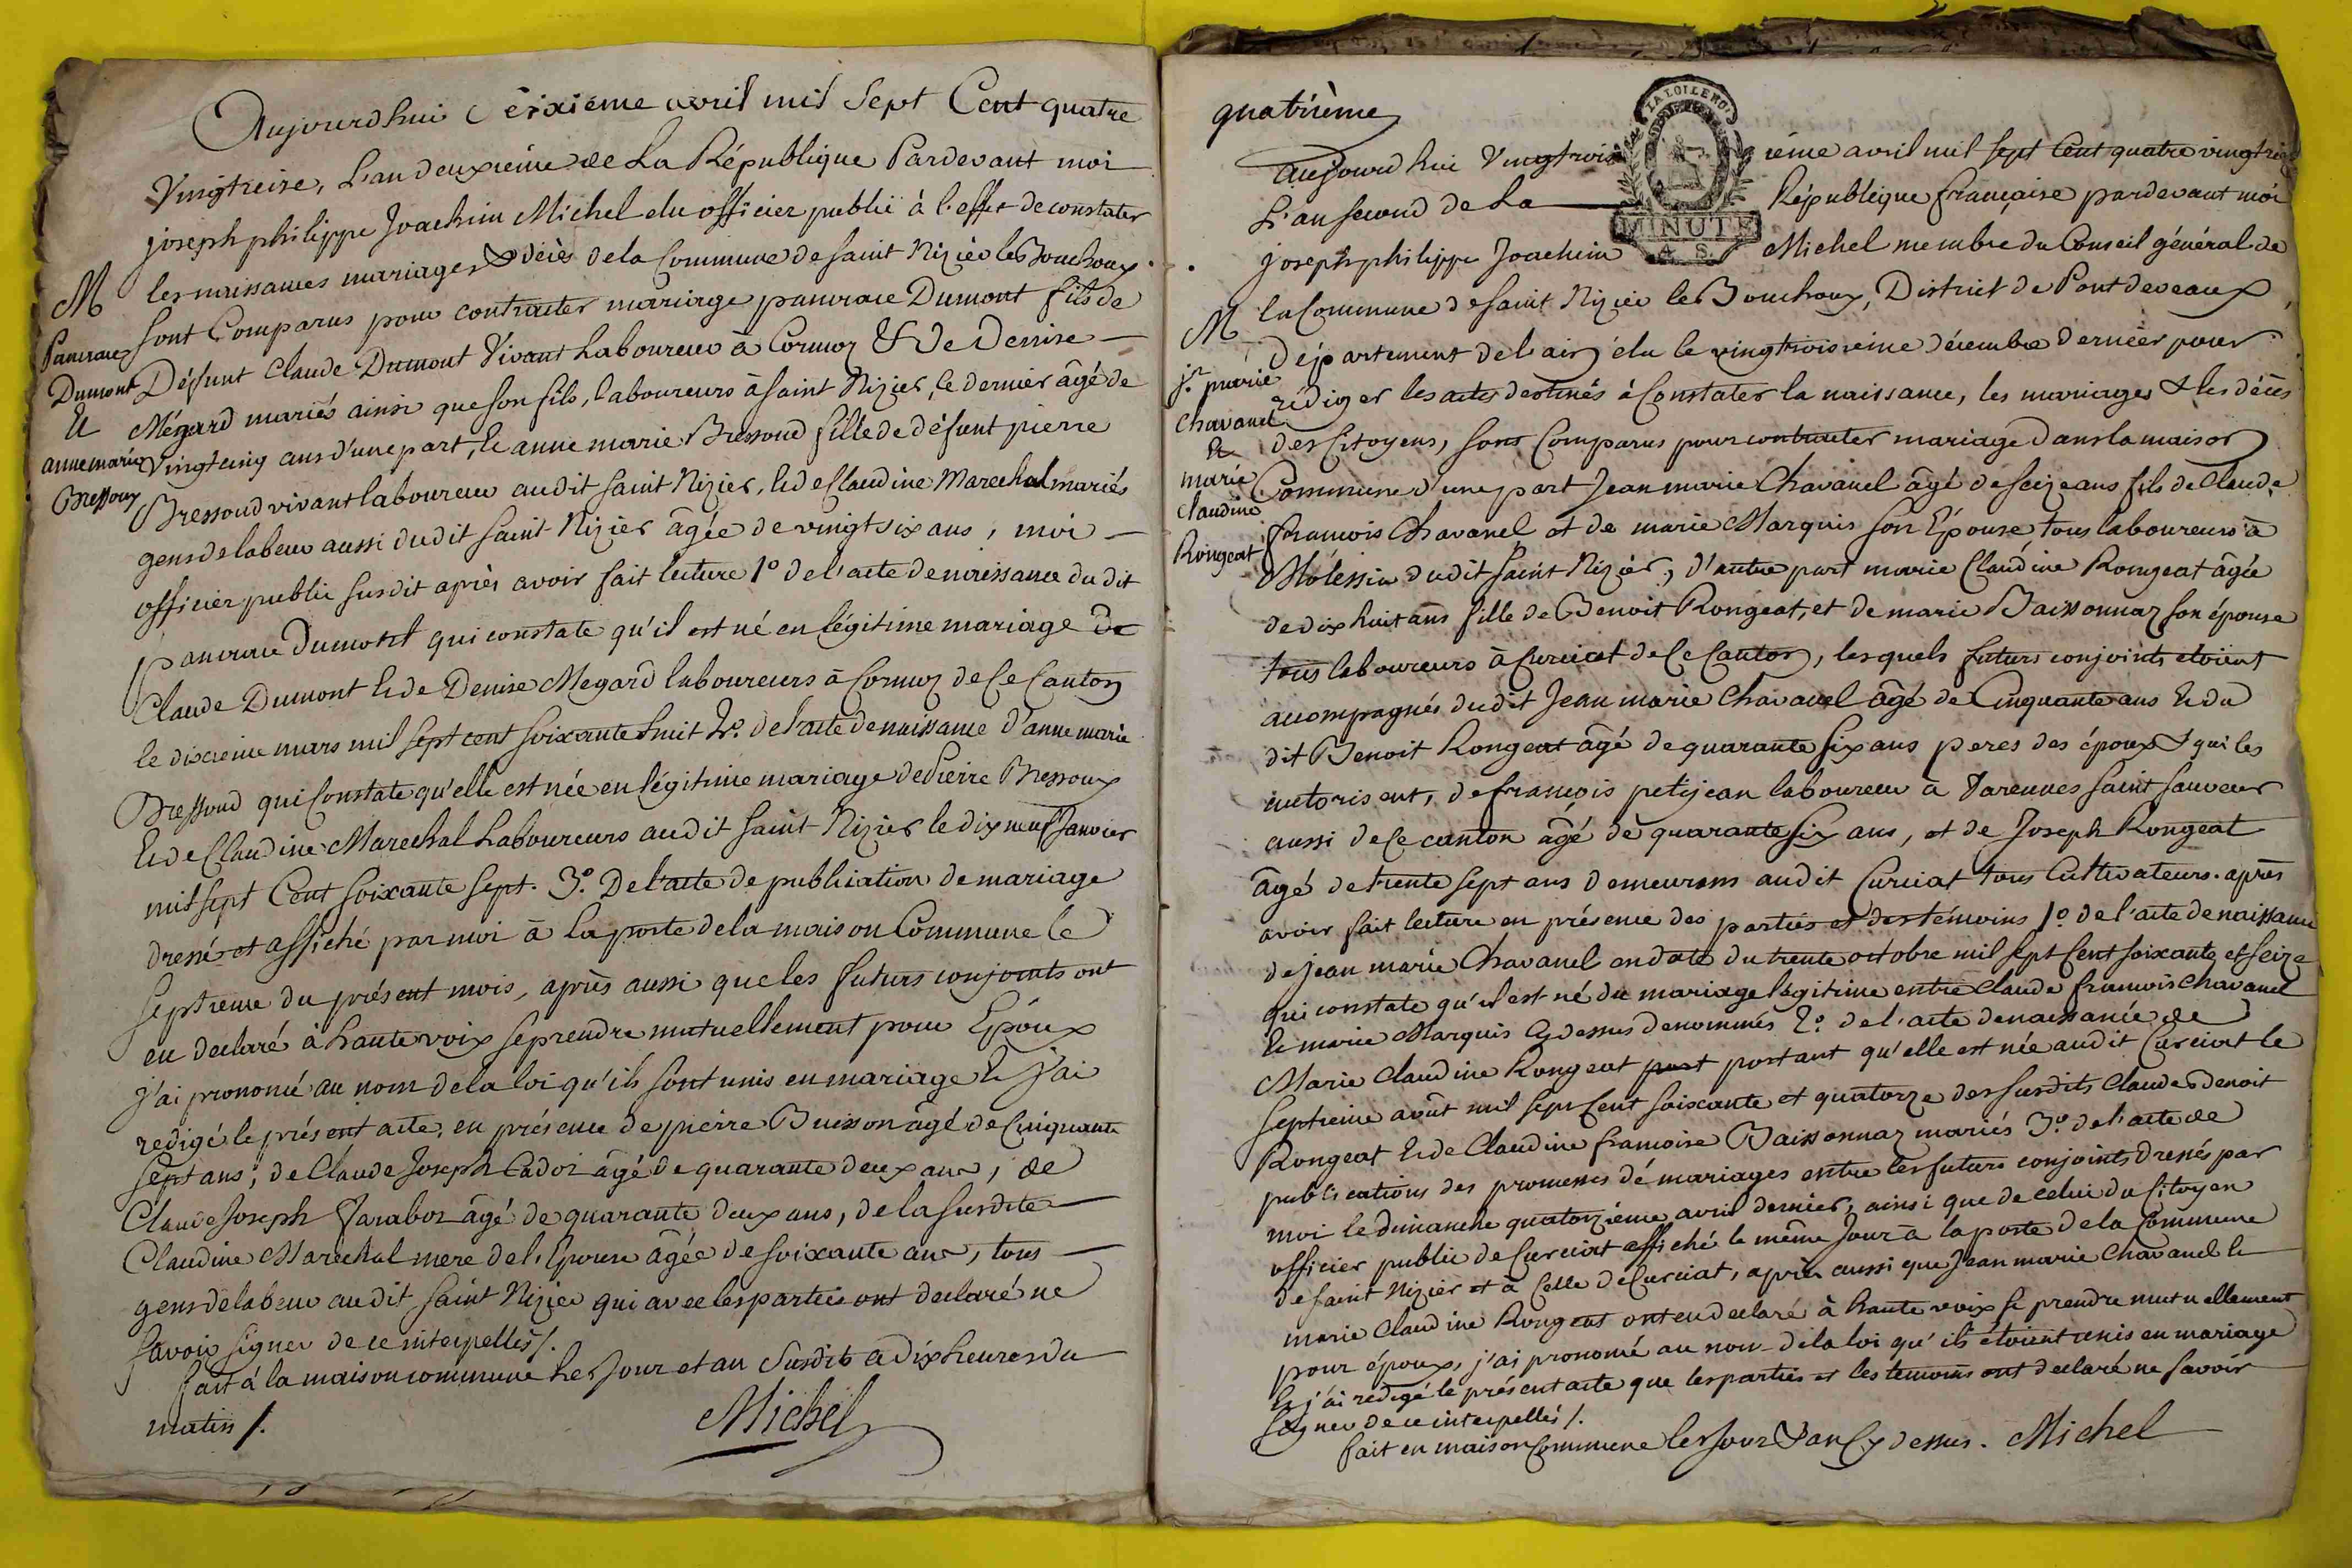 Aujourdhui Seixième avril mil Sept Cent quatre
Vingtreize, L'an deuxieme de La République Pardevant moi
joseph philippe Joachim Michel elu officier public à l'effet de constater
les naissances mariages & décès de la Commune de saint Nizier les Bouchoux.
M
sont Comparus pour contracter mariage pancrace Dumont fils de
Pancrace
Défunt Claude Dumont Vivant Laboureur à Cormoz & De Denise
Dumont
Mégard mariés ainsi que son fils, laboureurs à saint Nizier, le dernier âgé de
Et
vingtcinq ans d'une part, Et anne marie Bressoud fille de défunt pierre
anne marie
Bressoud vivant laboureur audit saint Nizier, Et de Claudine Marechal mariés
Bressoux
gens de labeur aussi dudit saint Nizier âgée de vingt six ans, moi
officier public susdit après avoir fait lecture 1º de l'acte de naissance du dit
Pancrace Dumont qui constate qu'il est né en légitime mariage de
Claude Dumont Et de Denise Megard laboureurs à Cormoz de Ce Canton
le dixieme mars mil sept cent soixante huit 2º. de l'acte de naissance d'anne marie
Bressoud qui Constate qu'elle est née en légitime mariage de Pierre Bressoux
Et de Claudine Marechal Laboureurs audit saint Nizier le dix neuf Janvier
mil sept Cent soixante sept. 3º. De l'acte de publication de mariage
dressé et affiché par moi à la porte de la maison Commune le
septieme du présent mois, après aussi que les futurs conjoints ont
eu declaré à haute voix se prendre mutuellement pour Epoux
j'ai prononcé au nom de la loi qu'ils sont unis en mariage Et j'ai
redigé le présent acte, en présence de pierre Buisson âgé de Cinquante
sept ans, de Claude Joseph Cadoz âgé de quarante deux ans, de
Claude Joseph Jaraboz âgé de quarante deux ans, de la susdite
Claudine Marechal mere de l'Epouse âgée de soixante ans, tous
gens de labeur audit saint Nizier qui avec les parties ont declaré ne
savoir signer de ce interpellés /.
fait à la maison commune les Jour et an susdits à dix heures du
matin /.
Michel
quatrième
LA LOI LE ROI
MINUTE
A. S.
aujourdhui Vingtroisième avril mil sept Cent quatre vingtreize
L'an second de La République française pardevant moi
joseph philippe Joachim Michel membre du Conseil général de
M
la Commune de saint Nizier les Bouchoux, District de Pontdeveaux,
Département de l'ain, élu le vingtroisieme décembre dernier pour
jn marie
rédiger les actes destinés à Constater la naissance, les mariages & les décès
Chavanel
des Citoyens, sont Comparus pour contracter mariage dans la maison
Et
Commune d'une part Jean marie Chavanel âgé de seize ans fils de Claude
marie
françois Chavanel et de marie Marquis son Epouse tous laboureurs à
Claudine
Molessin dudit saint Nizier, d'autre part marie Claudine Rongeat âgée
Rongeat
de dix huit ans fille de Benoit Rongeat, et de marie Baissonnaz son épouse
tous laboureurs à Curciat de Ce Canton, lesquels futurs conjoints etoient
accompagnés dudit Jean marie Chavanel âgé de Cinquante ans Et du
dit Benoit Rongeat âgé de quarante six ans peres des époux & qui les
autorisent, de françois petijean laboureur à Varennes saint sauveur
aussi de Ce canton âgé de quarante six ans, et de Joseph Rongeat
âgé de trente sept ans demeurans audit Curciat tous Cultivateurs. après
avoir fait lecture en présence des parties et des témoins 1º. de l'acte de naissance
de jean marie Chavanel en date du trente octobre mil sept Cent soixante et seize
qui constate qu'il est né du mariage légitime entre Claude françois Chavanel
Et marie Marquis Cydessus denommés 2º. de l'acte de naissance de
Marie Claudine Rongeat part portant qu'elle est née audit Curciat le
septieme août mil sept Cent soixante et quatorze des susdits Claude Benoit
Rongeat Et de Claudine francoise Baissonnaz mariés 3º. de l'acte de
publications des promesses de mariages entre les futurs conjoints dressés par
moi le dimanche quatorzième avril dernier, ainsi que de celui du Citoyen
officier public de Curciat affiché le même Jour à la porte de la Commune
de saint Nizier et à Celle de Curciat, après aussi que Jean marie Chavanel Et
marie Claudine Rongeat ont eu declaré à haute voix se prendre mutuellement
pour époux, j'ai prononcé au nom de la loi qu'ils étoient unis en mariage
Et j'ai redigé le présent acte que les parties et les temoins ont declaré ne savoir
signer de ce interpellés /.
fait en maison Commune les Jour & an Cy dessus. Michel